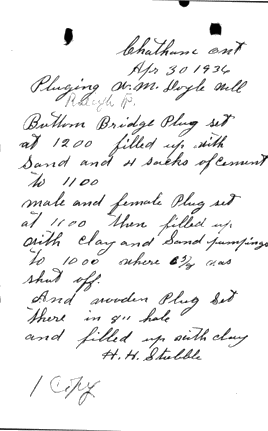 Chatham Ont
Apr 30 1936
Pluging W. M. Doyle well
Raleigh P.
Bottom Bridge Plug set
at 1200 filled up with
Sand and 4 sacks of cement
to 1100
male and female Plug set
at 1100 then filled up
with clay and Sand pumpings
to 1000 where 6 5/8 was
shut off.
And wooden Plug Set
there in 8" hole
and filled up with clay
H. H. Stubble
1 Copy